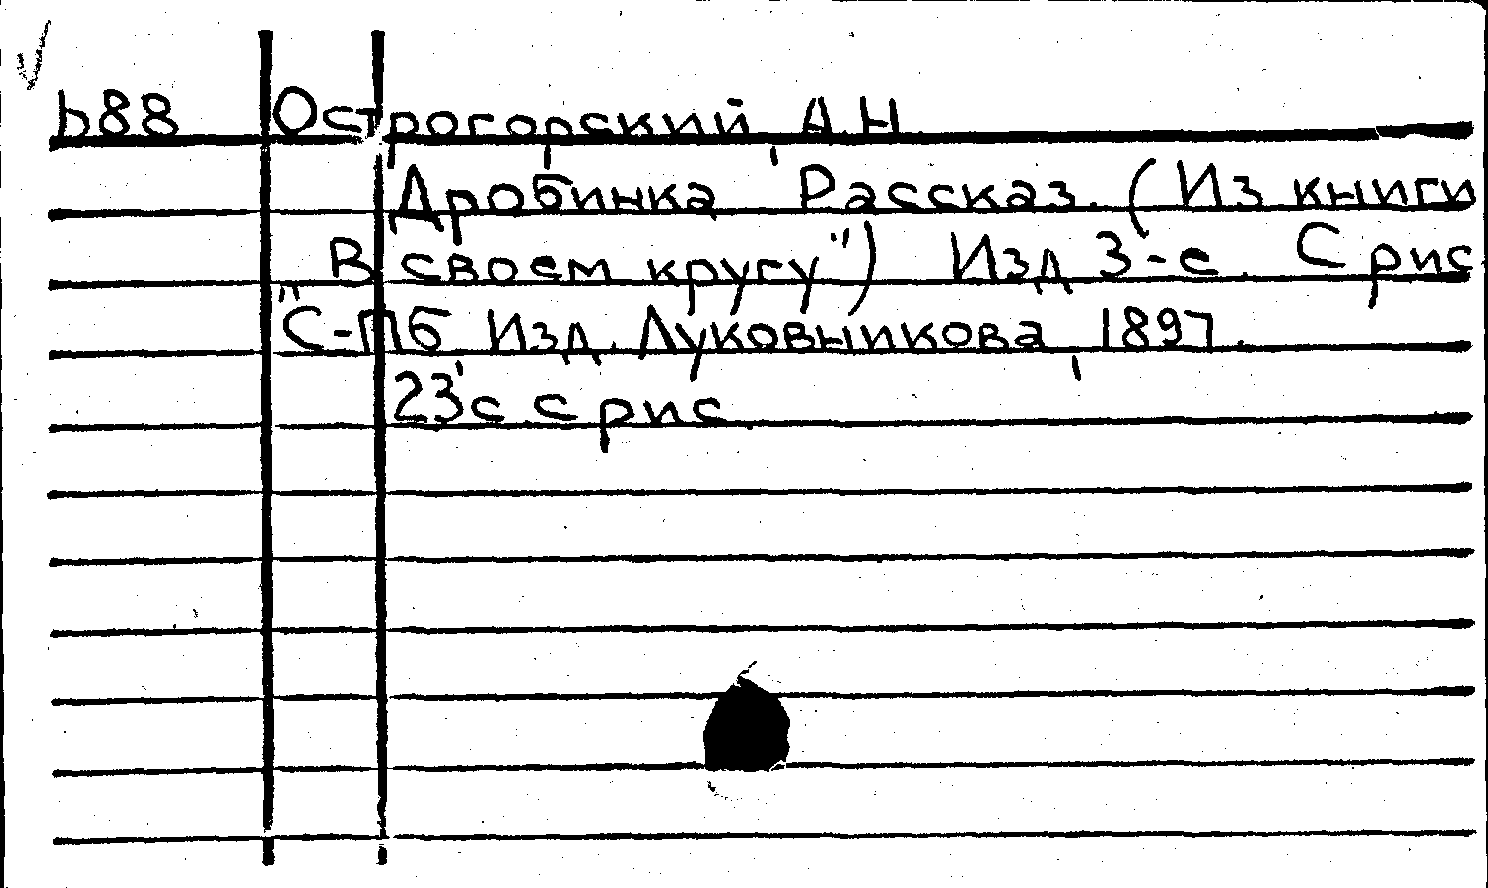 b88 Острогорский А.Н.
Дробинка. Рассказ. (Из книги
"В своем кругу") Изд 3-е. С рис
С-Пб Изд. Луковникова, 1897.
23 с с рис